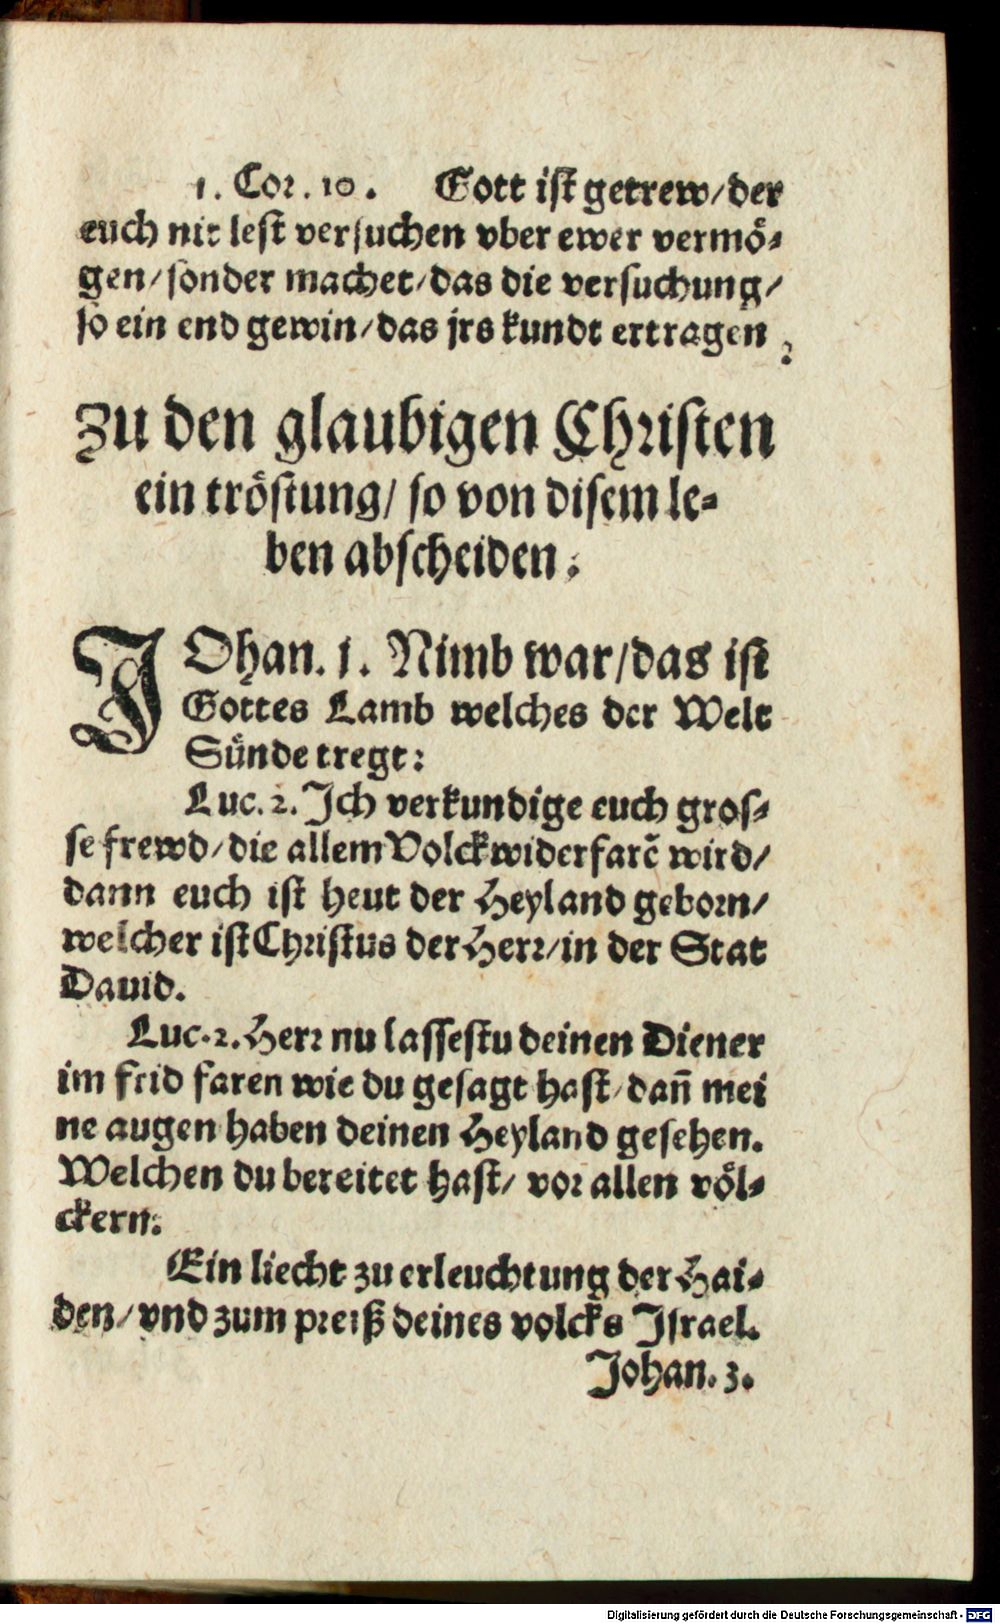 1. Cor. 10. Gott ist getrew/ der
euch nit lest versuchen vber ewer vermö-
gen/ sonder machet/ das die versuchung/
so ein end gewin/ das jrs kundt ertragen.
Zu den glaubigen Christen
ein tröstung/ so von disem le-
ben abscheiden.
JOhan. 1. Nimb war/ das ist
Gottes Lamb welches der Welt
Sünde tregt:
Luc. 2. Ich verkundige euch gros-
se frewd/ die allem Volck widerfarē wird/
dann euch ist heut der Heyland geborn/
welcher ist Christus der Herr/ in der Stat
Dauid.
Luc. 2. Herr nu lassestu deinen Diener
im frid faren wie du gesagt hast/ dañ mei
ne augen haben deinen Heyland gesehen.
Welchen du bereitet hast/ vor allen völ-
ckern.
Ein liecht zu erleuchtung der Hai-
den/ vnd zum preiß deines volcks Israel.
Johan. 3.
Digitalisierung gefördert durch die Deutsche Forschungsgemeinschaft - DFG